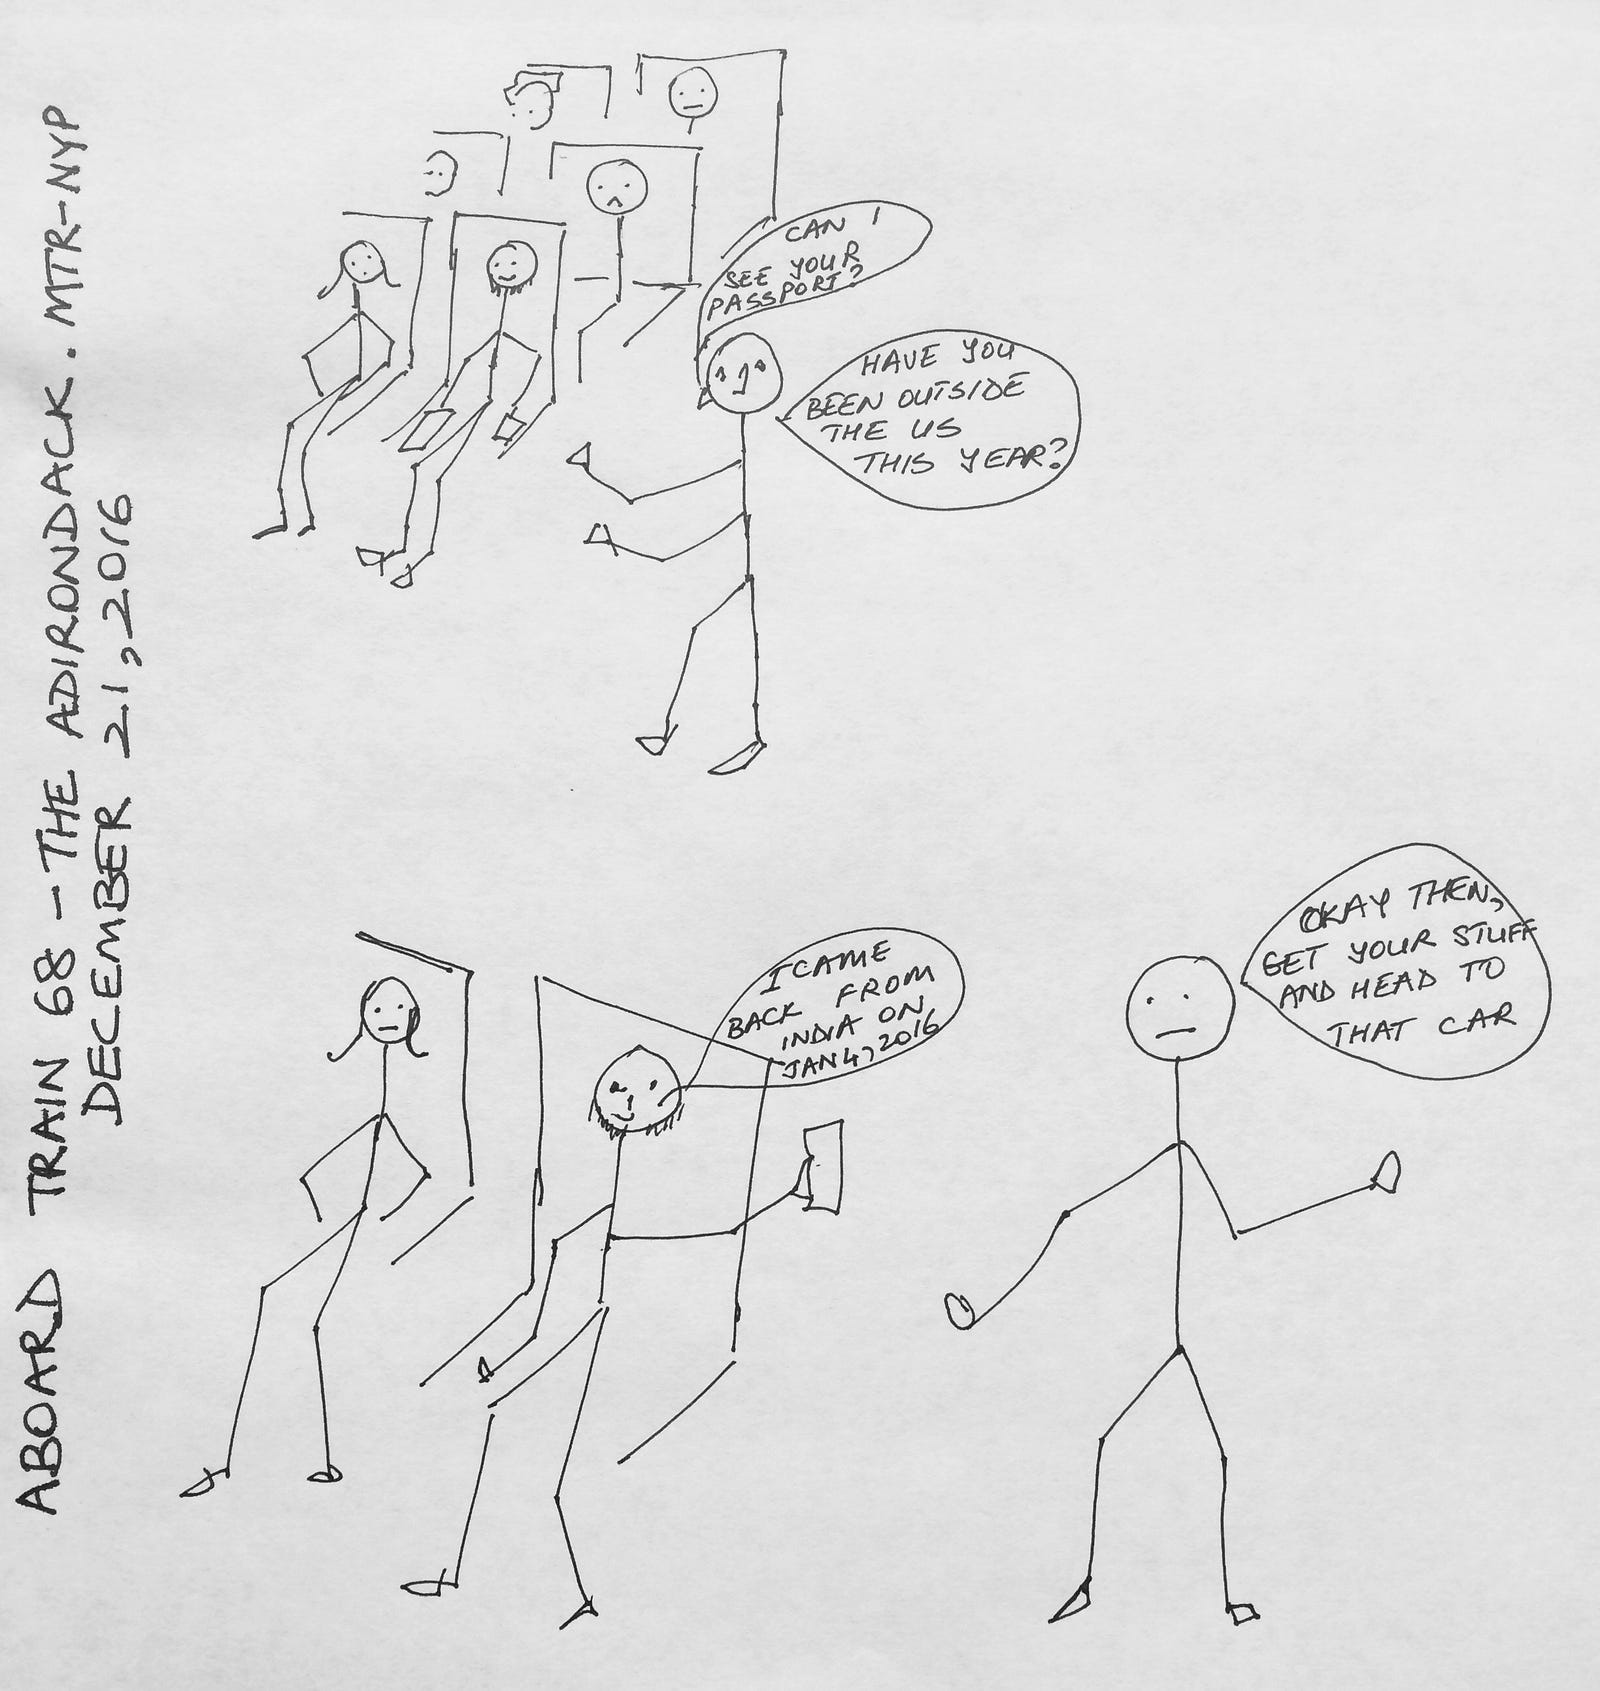 ABOARD TRAIN 68 - THE ADIRONDACK. MTR-NYP
DECEMBER 21, 2016
CAN I
SEE YOUR
PASSPORT?
HAVE YOU
BEEN OUTSIDE
THE US
THIS YEAR?
I CAME
BACK FROM
INDIA ON
JAN 4, 2016
OKAY THEN,
GET YOUR STUFF
AND HEAD TO
THAT CAR